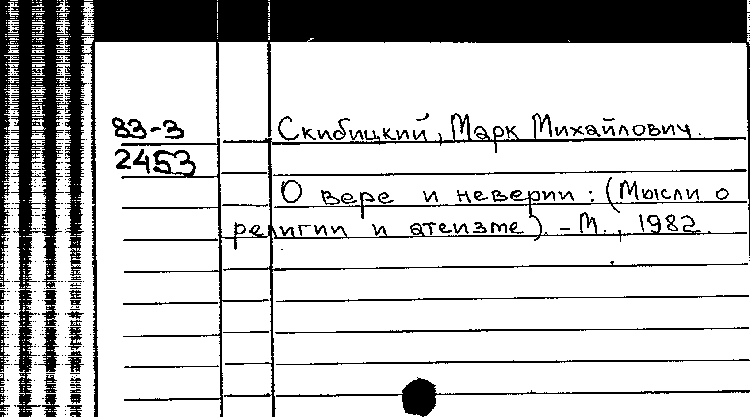 83-3
2453
Скибицкий, Марк Михайлович.
О вере и неверии: (Мысли о
религии и атеизме). - М., 1982.